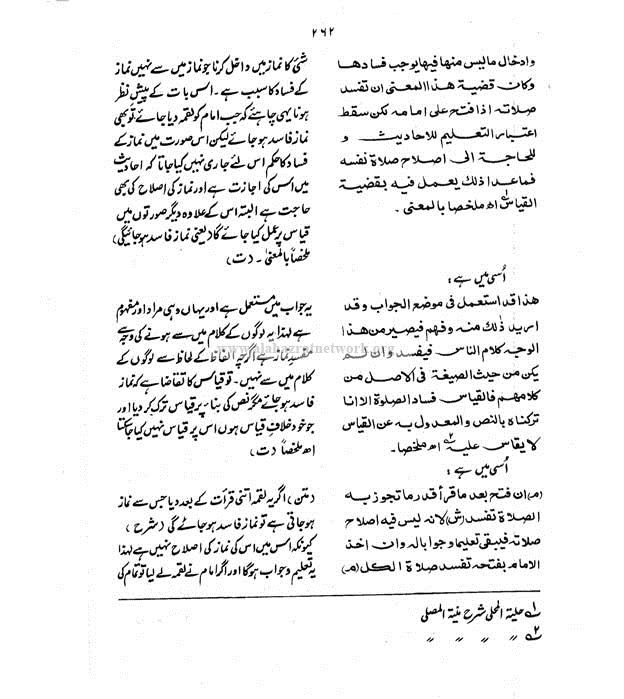 ۲۶۲
وادخال ماليس منها فيها يوجب فسادها
وكان قضية هذا المعنى ان تفسد
صلاته اذا فتح على امامه لكن سقط
اعتبار التعليم للاحاديث و
للحاجة الى اصلاح صلاة نفسه
فما عدا ذلك يعمل فيه بقضية
القياس اھ ملخصا بالمعنى۔
شئی کا نماز میں داخل کرنا جو نماز میں سے نہیں نماز
کے فساد کا سبب ہے۔ اس بات کے پیشِ نظر
ہونا یہی چاہئے کہ جب امام کو لقمہ دیا جائے تو بھی
نماز فاسد ہوجائے لیکن اس صورت میں نماز کے
فساد کا حکم اس لئے جاری نہیں کیا جاتا کہ احادیث
میں اس کی اجازت ہے اور نماز کی اصلاح کی بھی
حاجت ہے البتہ اس کے علاوہ دیگر صورتوں میں
قیاس پر عمل کیا جائے گا (یعنی نماز فاسد ہوجائیگی)
ملخصاً بالمعنی۔ (ت)
اُسی میں ہے :
هذا قد استعمل فى موضع الجواب وقد
اريد ذلك منه وفهم فيصير من هذا
الوجه كلام الناس فيفسد وان لم
يكن من حيث الصيغة فى الاصل من
كلامهم فالقياس فساد الصلوة الا انا
تركناه بالنص والمعدول به عن القياس
لا يقاس عليه ۲ اھ ملخصا۔
یہ جواب میں مستعمل ہے اور یہاں وہی مراد اور مفہوم
ہے لہذا یہ لوگوں کے کلام میں سے ہونے کی وجہ سے
مفسدِ نماز ہے اگرچہ الفاظ کے لحاظ سے لوگوں کے
کلام میں سے نہیں۔ تو قیاس کا تقاضا ہے کہ نماز
فاسد ہوجائے مگر نص کی بناء پر قیاس ترک کردیا اور
جو خود خلافِ قیاس ہوں اس پر قیاس نہیں کیا جاسکتا
اھ ملخصاً (ت)
www.alahazratnetwork.org
اُسی میں ہے :
(م) ان فتح بعد ما قرأ قدر ما تجوز به
الصلاة تفسد (ش) لانه ليس فيه اصلاح
صلاته فيبقى تعليما وجوابا له وان اخذ
الامام بفتحه تفسد صلاة الكل (م)
(متن) اگر یہ لقمہ اتنی قرأت کے بعد دیا جس سے نماز
ہوجاتی ہے تو نماز فاسد ہوجائے گی (شرح)
کیونکہ اس میں اس کی نماز کی اصلاح نہیں ہے لہذا
یہ تعلیم و جواب ہوگا اور اگر امام نے لقمہ لے لیا تو تمام کی
۱ حلیۃ المحلی شرح منیۃ المصلی
۲ " " " "